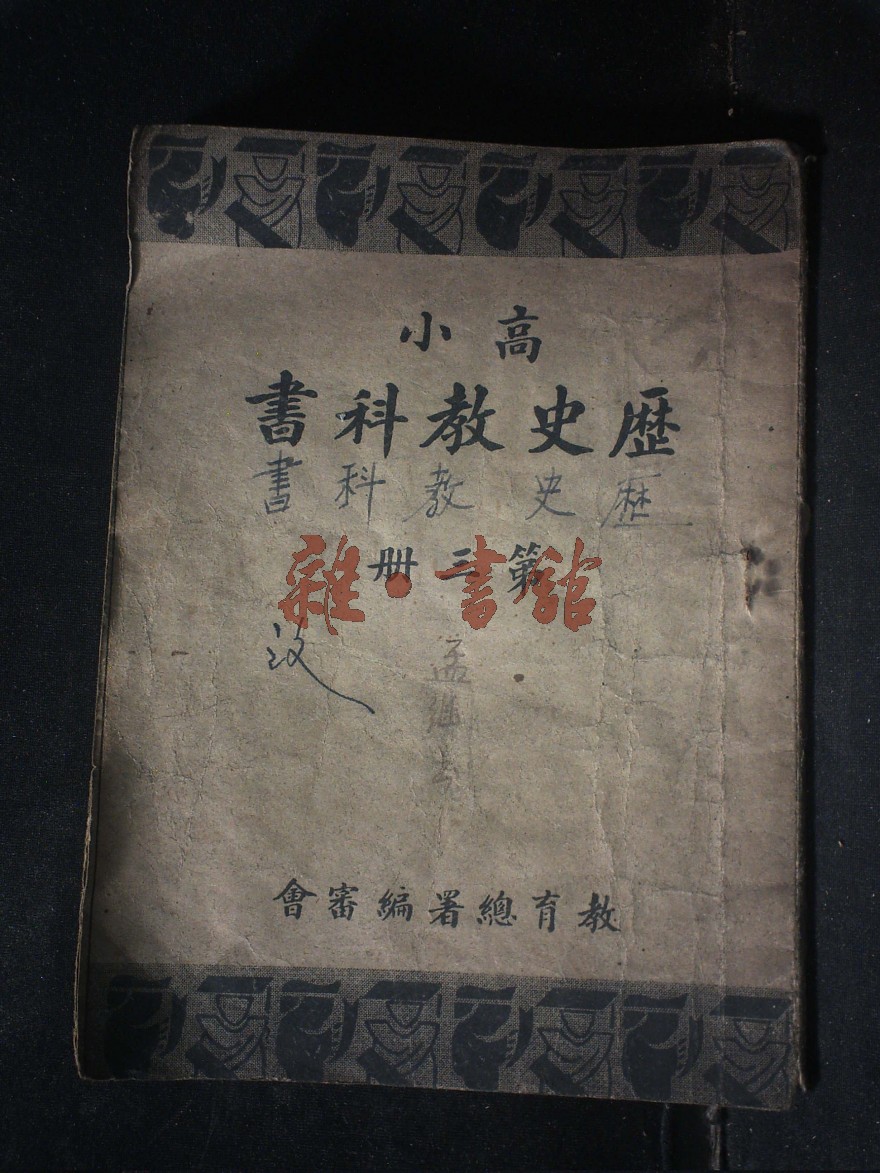 高小
歷史教科書
歷史教科書
第三冊
雜·書館
孟繼
教育總署編審會